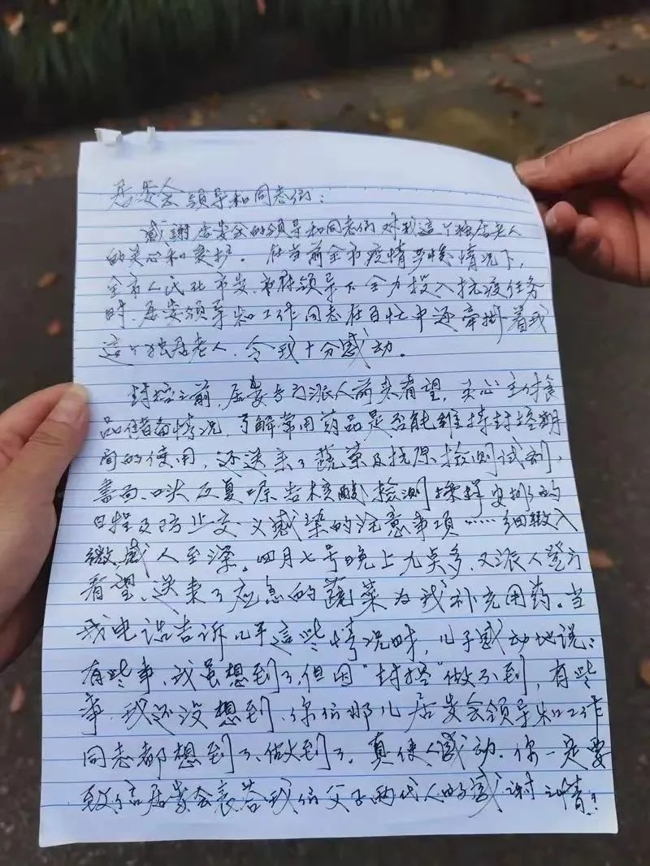 居委会领导和同志们：
感谢居委会的领导和同志们对我这个独居老人
的关心和爱护。在当前全市疫情严峻情况下，
全市人民在市委、市府领导下全力投入抗疫任务
时，居委领导和工作同志在百忙中还牵掛着我
这个独居老人，令我十分感动。
封控之前，居委专门派人前来看望，关心主付食
品储备情况，了解常用药品是否能维持封控期
间的使用，还送来了蔬菜及抗原检测试剂，
书面、口头反复嘱告核酸检测採样安排的
日程及防止交义感染的注意事项……细緻入
微，感人至深。四月七号晚上九点多，又派人登门
看望、送来了应急的蔬菜为我补充用药。当
我电话告诉儿子这些情况时，儿子感动地说：
有些事，我虽想到了，但因“封控”做不到，有些
事，我还没想到，你们那儿居委会领导和工作
同志都想到了、做到了，真使人感动，你一定要
致信居委会表答我们父子两代人的感谢之情！